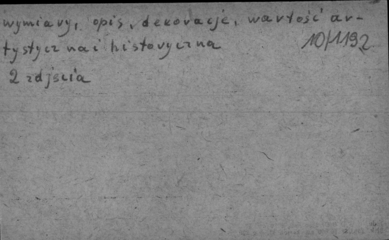 wymiary, opis, dekoracje, wartość ar-
tystyczna i historyczna
10/1192
2 zdjęcia